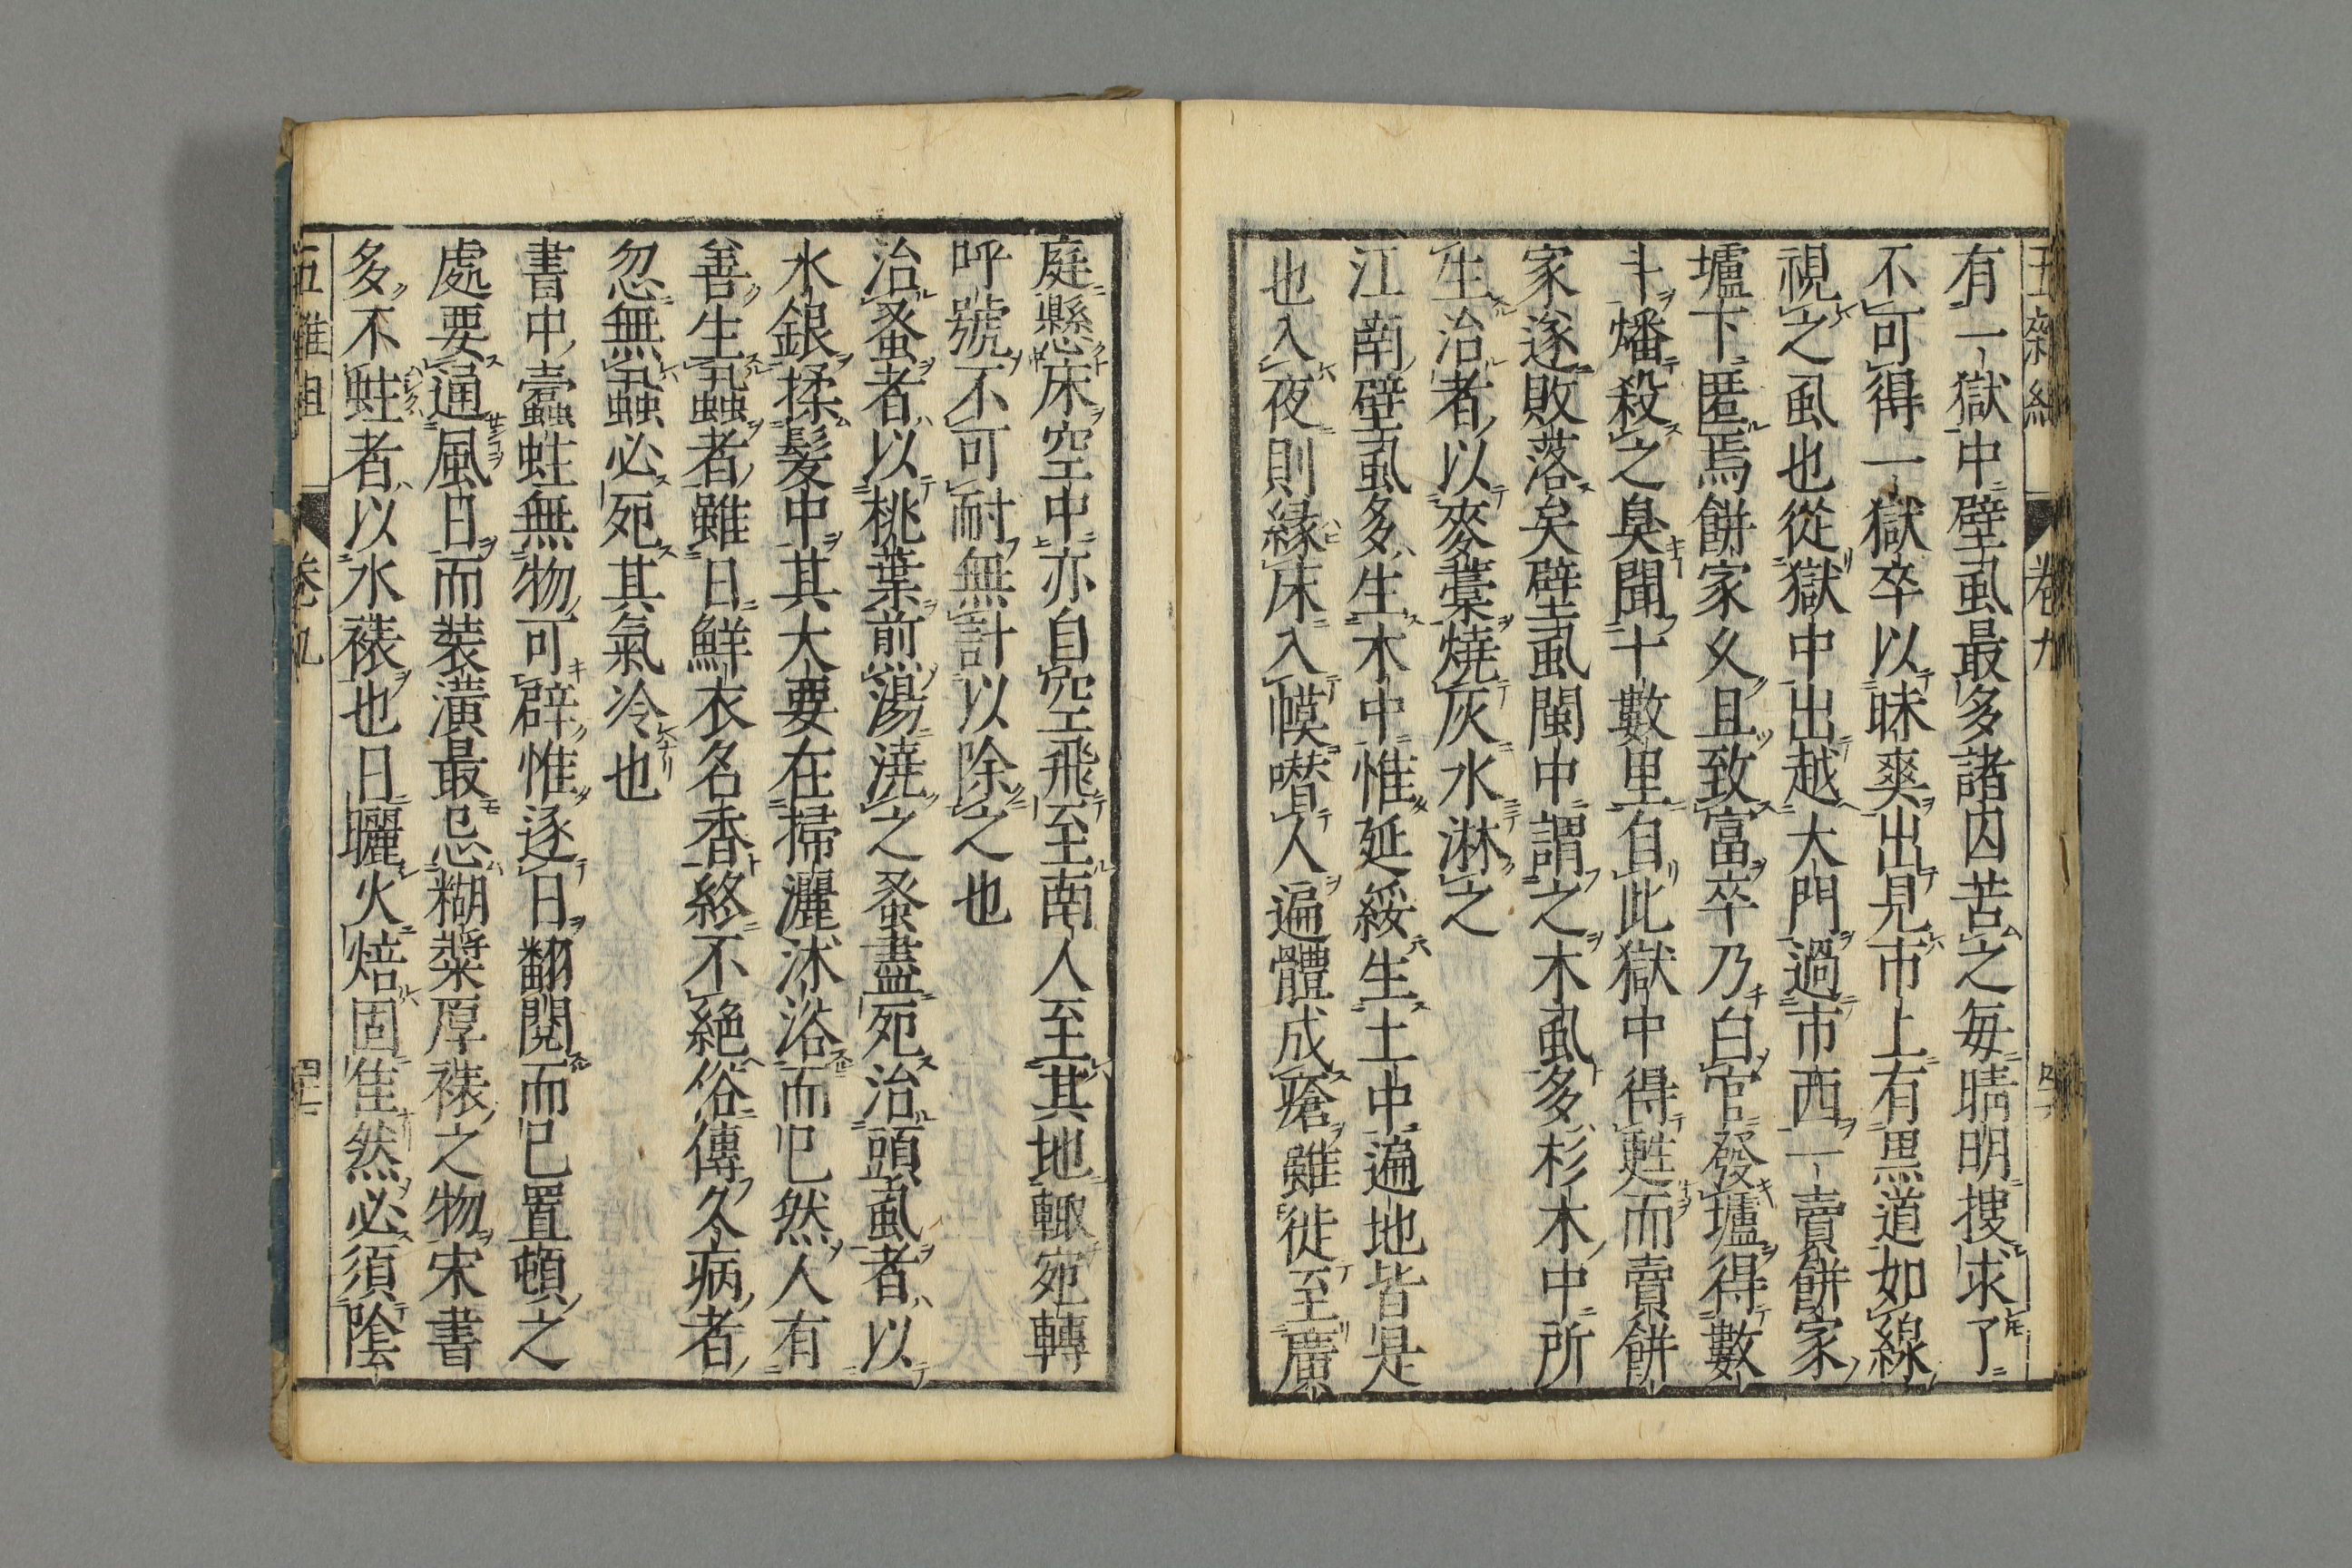 五雜組 卷九
有一獄中壁虱最多諸囚苦之每晴明搜求了
不可得一獄卒以昧爽出見市上有黒道如線
視之虱也從獄中出越大門過市西一賣餅家
壚下匿焉餅家乆且致富卒乃白官發壚得數
斗燔殺之臭聞十數里自此獄中得甦而賣餅
家遂敗落矣壁虱閩中謂之木虱多杉木中所
生治者以麥藁燒灰水淋之
江南壁虱多生木中惟延綏生土中遍地皆是
也入夜則緣床入幙噆人遍體成瘡雖徙至廣
庭懸床空中亦自空飛至南人至其地輙宛轉
呼號不可耐無計以除之也
治蚤者以桃葉煎湯澆之蚤盡死治頭虱者以
水銀揉髮中其大要在掃灑沐浴而已然人有
善生蝨者雖日鮮衣名香終不絕俗傳久病者
忽無蝨必死其氣冷也
書中蠹蛀無物可辟惟逐日翻閱而已置頓之
處要通風日而裝潢最忌糊漿厚裱之物宋書
多不蛀者以水裱也日曬火焙固佳然必須陰
五雜組 卷九